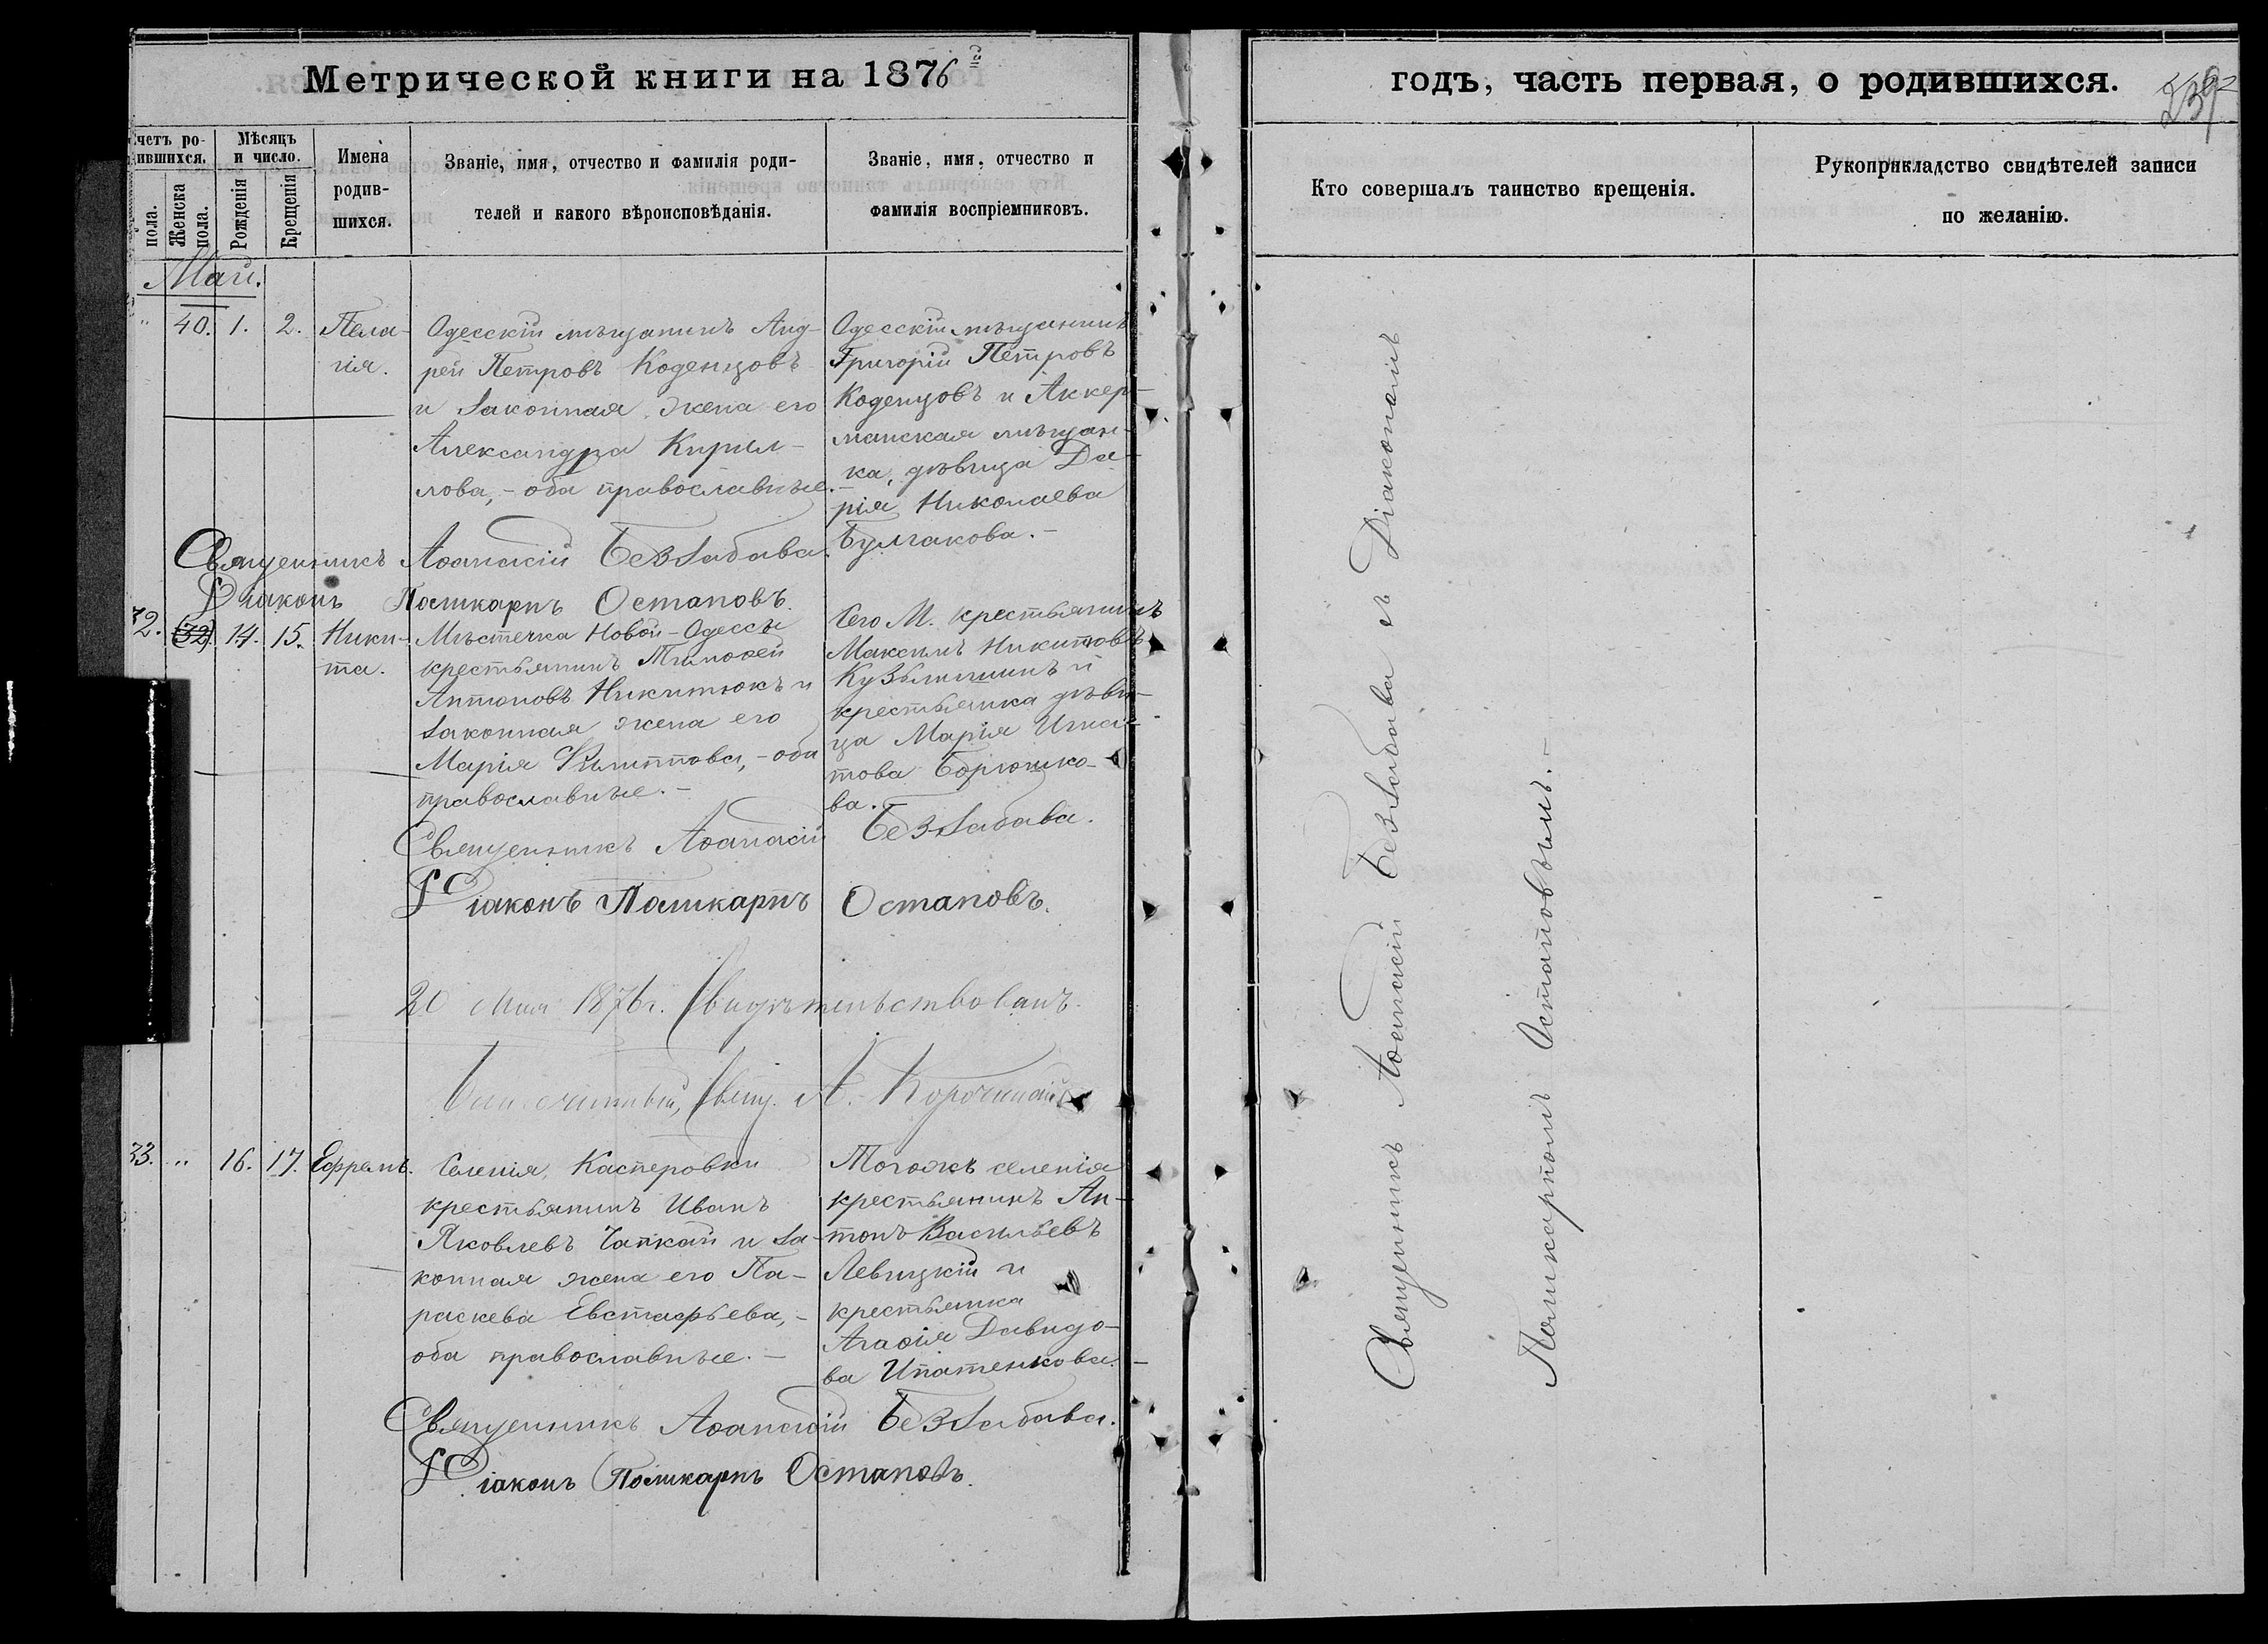 Метрической книги на 1876й
Счетъ родившихся.
Мѣсяцъ и число.
пола.
Женска пола.
Рожденія
Крещенія
Имена родившихся.
Званіе, имя, отчество и фамилія роди-
телей и какого вѣроисповѣданія.
Званіе, имя, отчество и
фамилія воспріемниковъ.
Май.
" 40. 1. 2.
Пела-
гія.
Одесскій мѣщанинъ Анд-
рей Петровъ Коденцовъ
и законная жена его
Александра Кирил-
лова, - оба православные.
Одесскій мѣщанинъ
Григорій Петровъ
Коденцовъ и Аккер-
манская мѣщан-
ка, дѣвица Да-
рія Николаева
Булгакова. -
Священникъ Аѳанасій Беззабава.
Діаконъ Поликарпъ Остаповъ.
32. 32. 14. 15.
Ники-
та.
Мѣстечка Новой-Одессы
крестьянинъ Тимоѳей
Антоновъ Никитюкъ и
законная жена его
Марія Филиппова, - оба
православные. -
Сего М. крестьянинъ
Максимъ Никитовъ
Кузьминъ и
крестьянка дѣви-
ца Марія Игна-
това Борюшко-
ва.
Священникъ Аѳанасій Беззабава.
Діаконъ Поликарпъ Остаповъ.
20 Мая 1876 г. Свидѣтельствовалъ
Благочинный, Свящ. А.
33. " 16. 17.
Ефремъ.
Селенія Касперовки
крестьянинъ Иванъ
Яковлевъ Чапкай и за-
конная жена его Па-
раскева Евстафьева, -
оба православные. -
Тогожъ селенія
крестьянинъ Ан-
тонъ Васильевъ
Левицкій и
крестьянка
Агаѳія Давидо-
ва Ипатенкова. -
Священникъ Аѳанасій Беззабава.
Діаконъ Поликарпъ Остаповъ.
годъ, часть первая, о родившихся.
239
Кто совершалъ таинство крещенія.
Рукоприкладство свидѣтелей записи
по желанію.
Священникъ Аѳанасій Беззабава съ Діакономъ
Поликарпомъ Остаповымъ. -